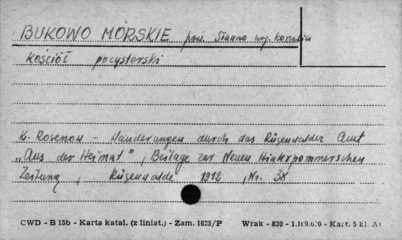 BUKOWO MORSKIE pow. Sławno woj. Koszalin
Kościół pocysterski
K. Rosenow - Wanderungen durch das Rügenwalder Amt
"Aus der Heimat", Beilage zur Neuen Hinterpommerschen
Zeitung, Rügenwalde 1912, Nr. 38
CWD - B 15b - Karta katal. (z liniat.) - Zam. 1625/P Wrak - 830 - Kart. 5 kl. A1